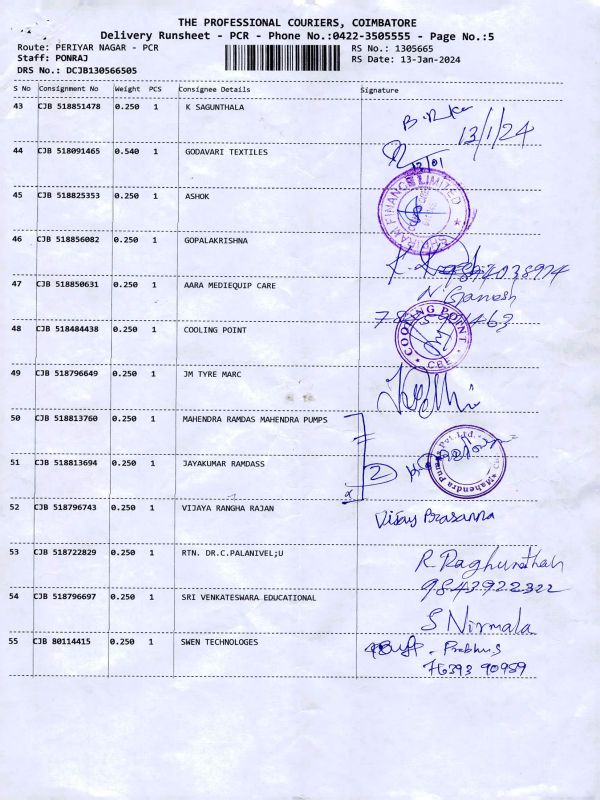 THE PROFESSIONAL COURIERS, COIMBATORE
Delivery Runsheet - PCR - Phone No.:0422-3505555 - Page No.:5
Route: PERIYAR NAGAR - PCR RS No.: 1305665
Staff: PONRAJ RS Date: 13-Jan-2024
DRS No.: DCJB130566505
S No Consignment No Weight PCS Consignee Details Signature
43 CJB 518851478 0.250 1 K SAGUNTHALA
13/1/24
44 CJB 518091465 0.540 1 GODAVARI TEXTILES
13/01
45 CJB 518825353 0.250 1 ASHOK
FINANCE LIMITED
46 CJB 518856082 0.250 1 GOPALAKRISHNA
47 CJB 518850631 0.250 1 AARA MEDIEQUIP CARE
N Ganesh
48 CJB 518484438 0.250 1 COOLING POINT
COOLING POINT
CBE
49 CJB 518796649 0.250 1 JM TYRE MARC
50 CJB 518813760 0.250 1 MAHENDRA RAMDAS MAHENDRA PUMPS
Mahendra Pumps Pvt. Ltd.
51 CJB 518813694 0.250 1 JAYAKUMAR RAMDASS
2
52 CJB 518796743 0.250 1 VIJAYA RANGHA RAJAN
Vijay Prasanna
53 CJB 518722829 0.250 1 RTN. DR.C.PALANIVEL;U
R. Raghunathan
9843922322
54 CJB 518796697 0.250 1 SRI VENKATESWARA EDUCATIONAL
S Nirmala
55 CJB 80114415 0.250 1 SWEN TECHNOLOGES
- Prabhu S
76393 90989